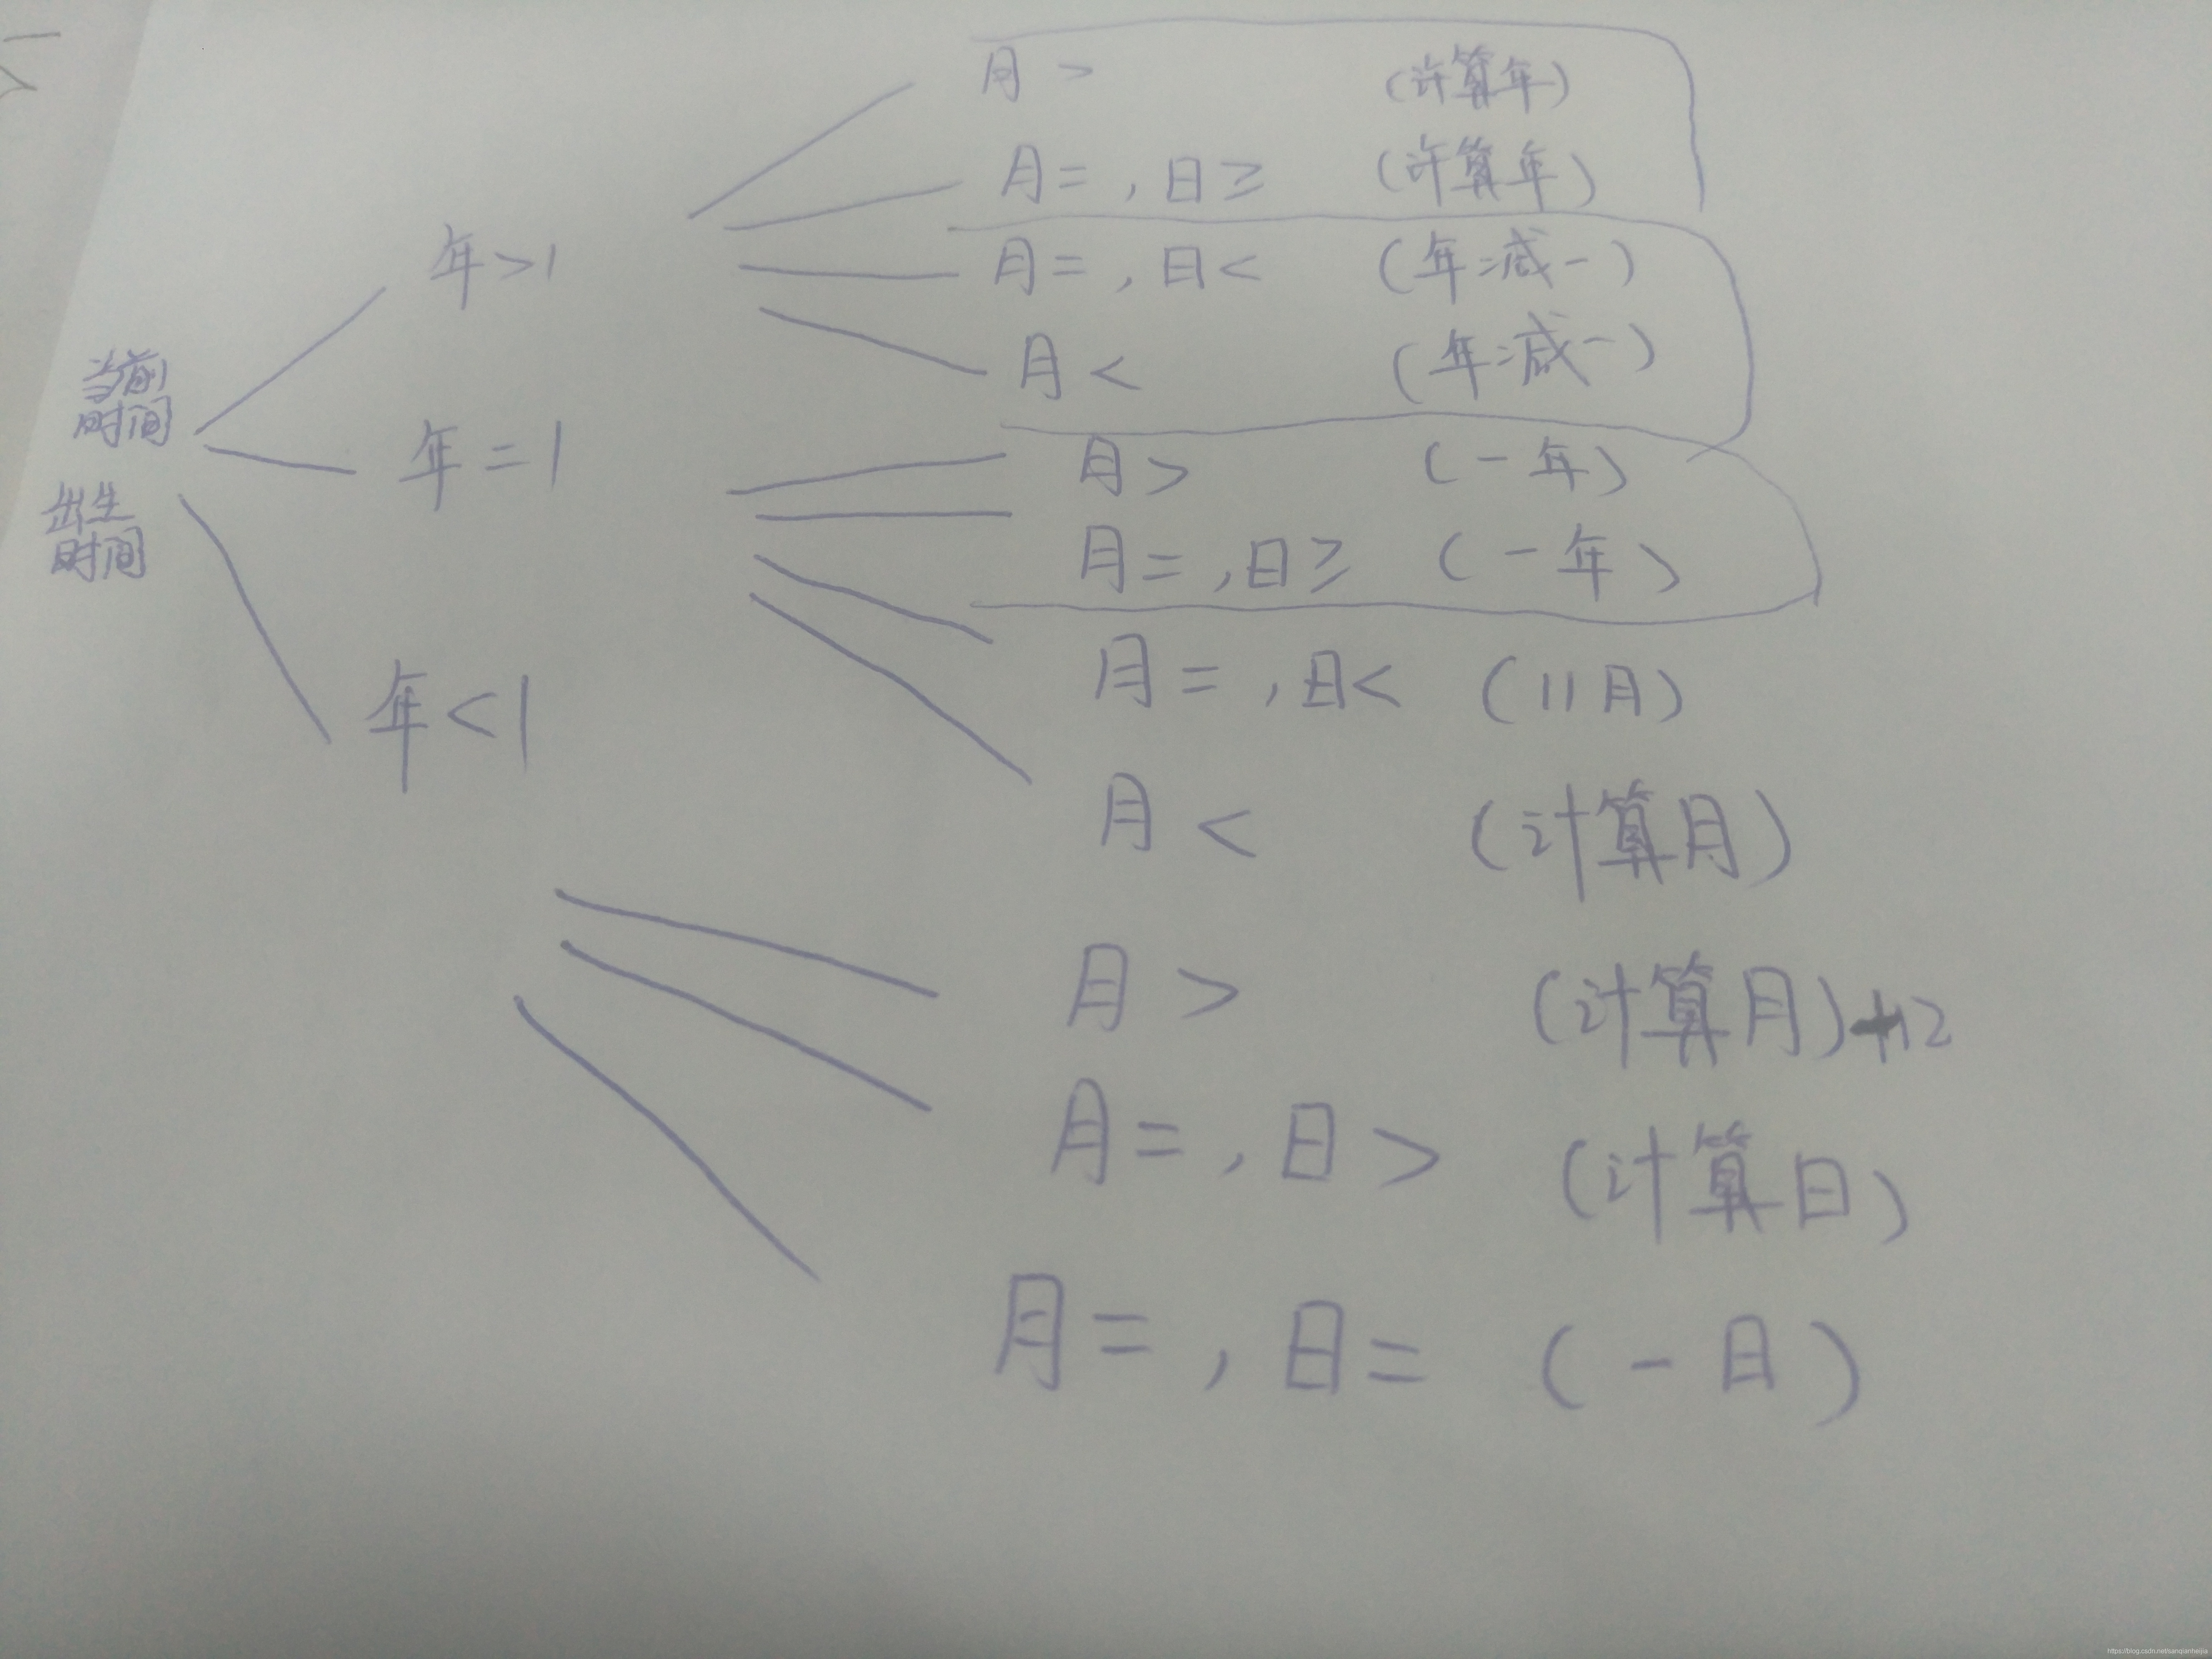 当前
时间
出生
时间
年>1
月> (计算年)
月=,日≥ (计算年)
月=,日< (年减一)
月< (年减一)
年=1
月> (一年)
月=,日≥ (一年)
月=,日< (11月)
月< (计算月)
年<1
月> (计算月)+12
月=,日> (计算日)
月=,日= (一日)
https://blog.csdn.net/sanqianheijia